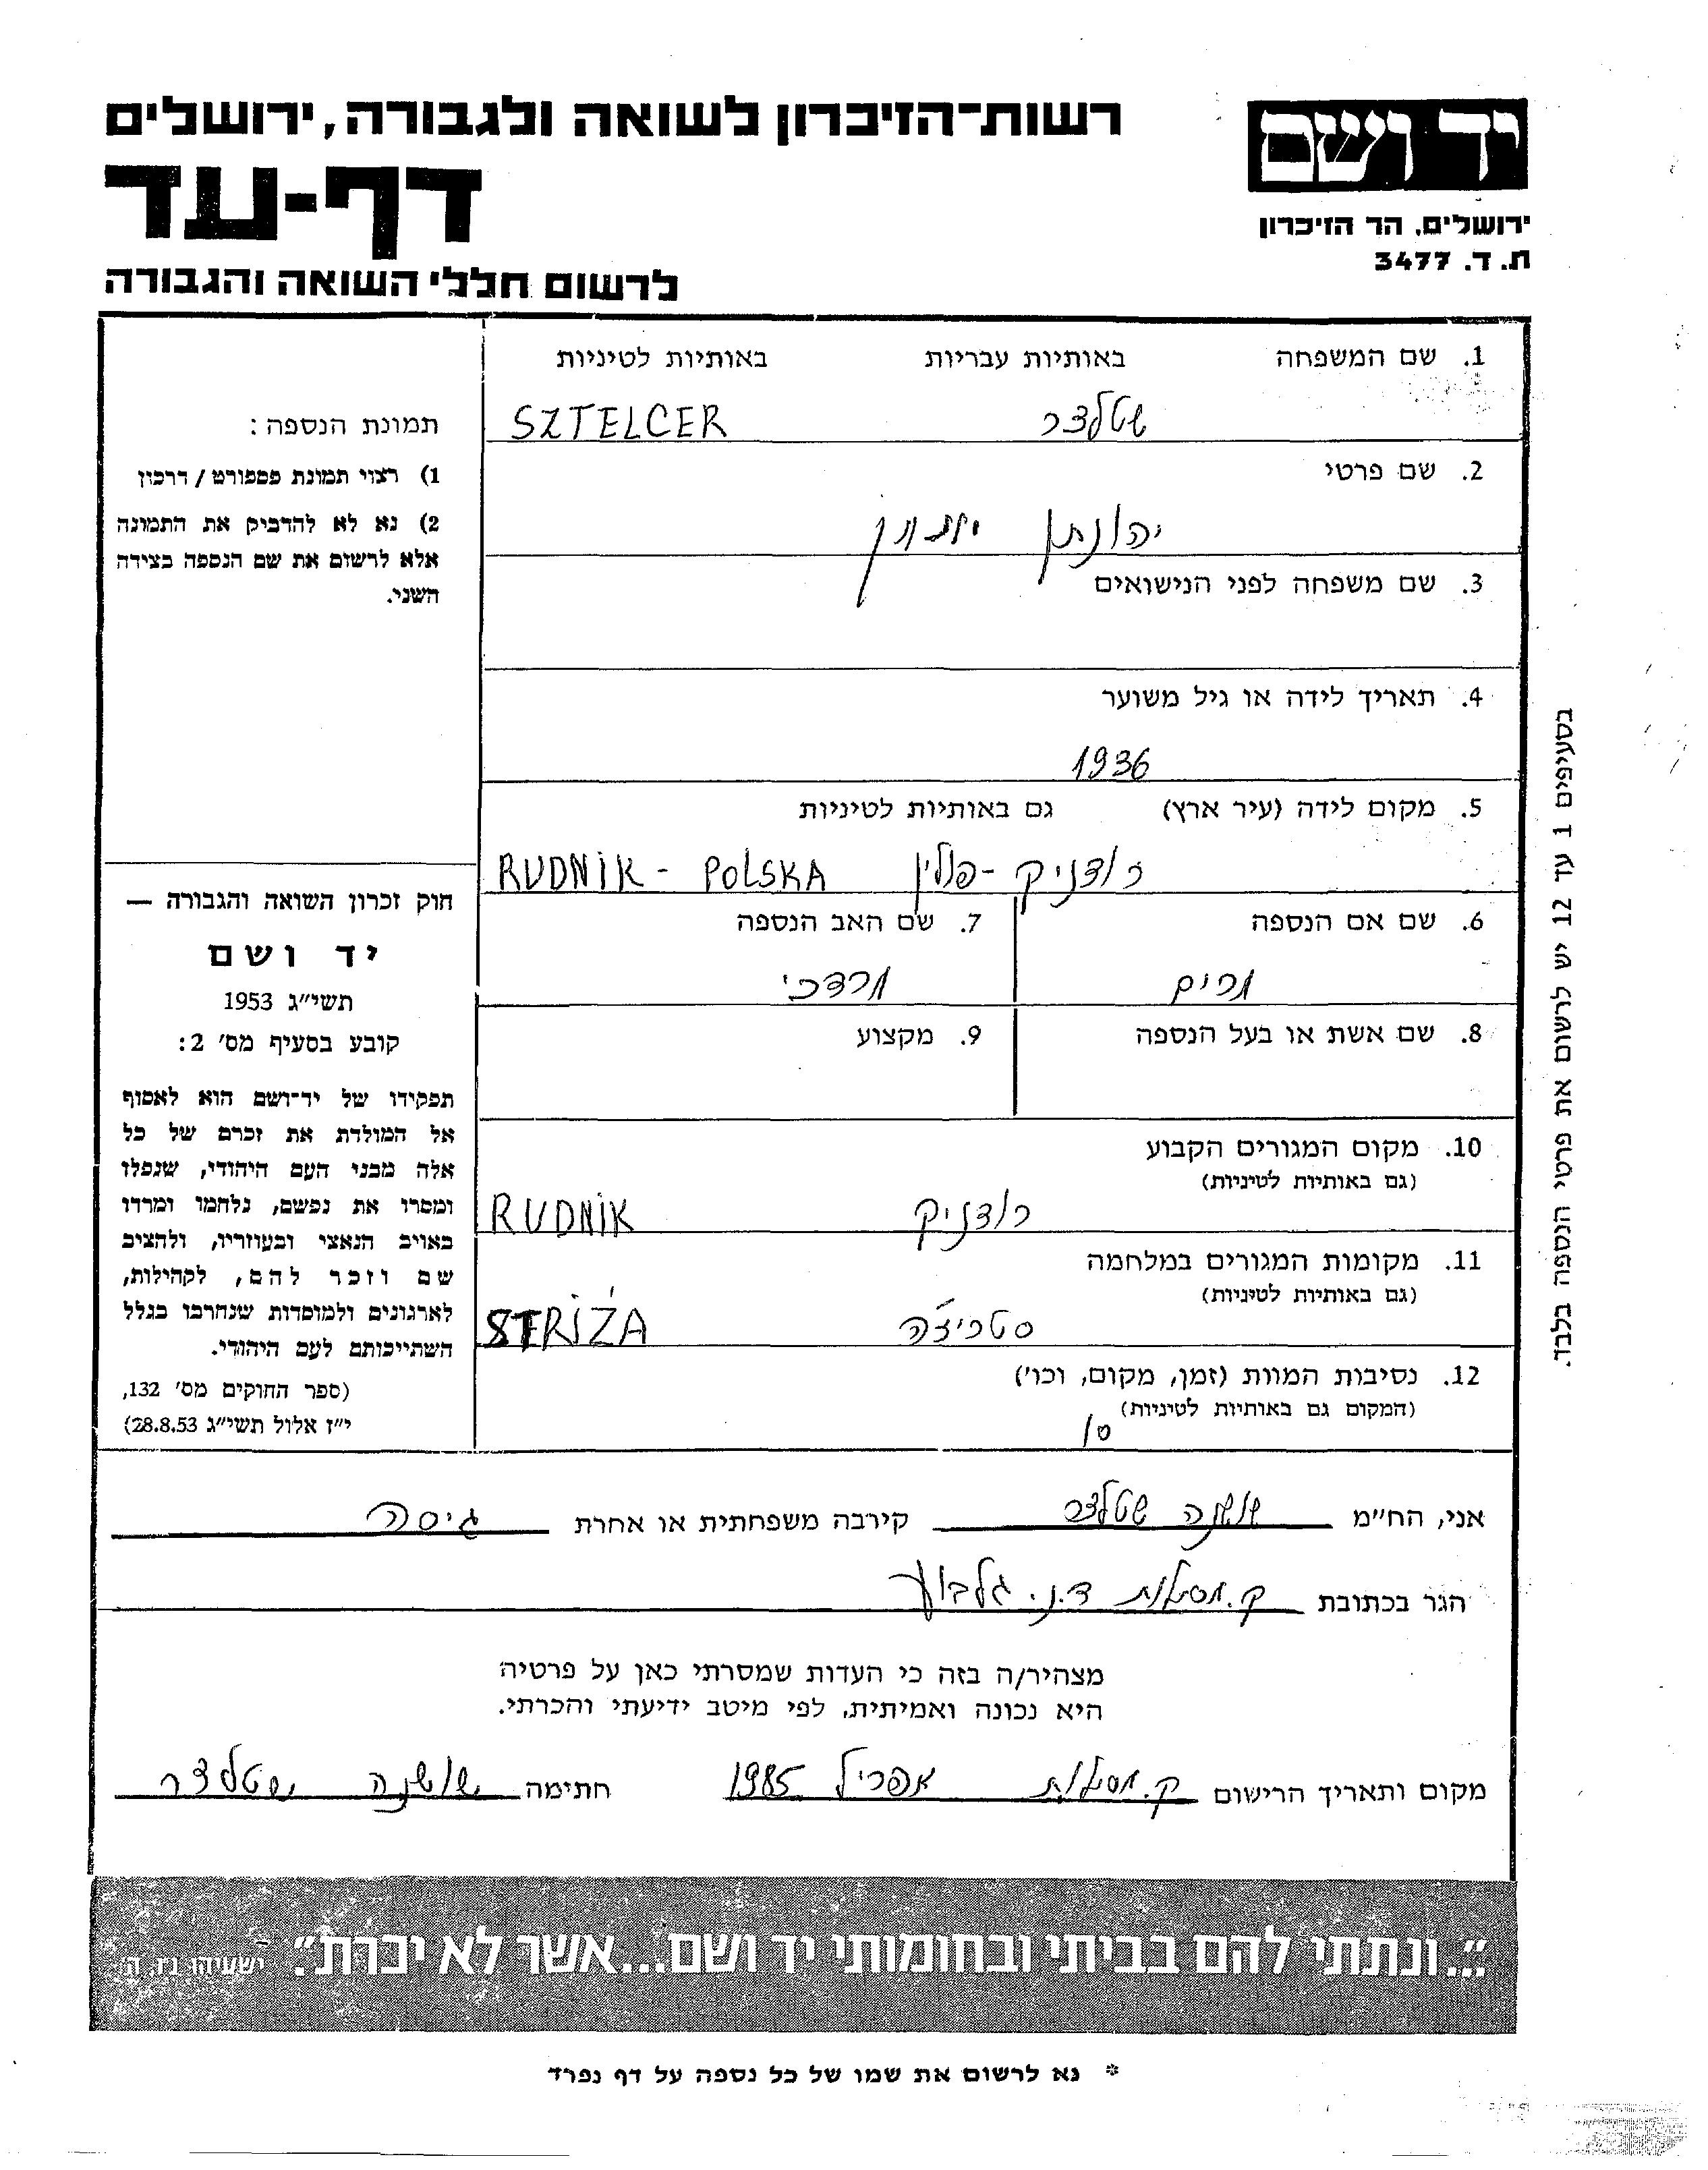 רשות־הזיכרון לשואה ולגבורה, ירושלים
דף-עד
לרשום חללי השואה והגבורה
יד ושם
ירושלים, הר הזיכרון
ת. ד. 3477
1. שם המשפחה באותיות עבריות באותיות לטיניות
שטלצר SZTELCER
2. שם פרטי
יהונתן
3. שם משפחה לפני הנישואים
4. תאריך לידה או גיל משוער
1936
5. מקום לידה (עיר ארץ) גם באותיות לטיניות
רודניק - פולין RUDNIK - POLSKA
6. שם אם הנספה 7. שם האב הנספה
מרים מרדכי
8. שם אשת או בעל הנספה 9. מקצוע
10. מקום המגורים הקבוע
(גם באותיות לטיניות)
רודניק RUDNIK
11. מקומות המגורים במלחמה
(גם באותיות לטיניות)
סטריז'ה STRIŻA
12. נסיבות המוות (זמן, מקום, וכו')
(המקום גם באותיות לטיניות)
תמונת הנספה :
1) רצוי תמונת פספורט / דרכון
2) נא לא להדביק את התמונה
אלא לרשום את שם הנספה בצידה
השני.
חוק זכרון השואה והגבורה —
יד ושם
תשי״ג 1953
קובע בסעיף מס׳ 2:
תפקידו של יד־ושם הוא לאסוף
אל המולדת את זכרם של כל
אלה מבני העם היהודי, שנפלו
ומסרו את נפשם, נלחמו ומרדו
באויב הנאצי ובעוזריו, ולהציב
שם וזכר להם, לקהילות,
לארגונים ולמוסדות שנחרבו בגלל
השתייכותם לעם היהודי.
(ספר החוקים מס׳ 132,
י״ז אלול תשי״ג 28.8.53)
בסעיפים 1 עד 12 יש לרשום את פרטי הנספה בלבד.
אני, הח״מ שושנה שטלצר קירבה משפחתית או אחרת גיסה
הגר בכתובת ק. מסילות ד.נ. גלבוע
מצהיר/ה בזה כי העדות שמסרתי כאן על פרטיה
היא נכונה ואמיתית, לפי מיטב ידיעתי והכרתי.
מקום ותאריך הרישום ק. מסילות אפריל 1985 חתימה שושנה שטלצר
״...ונתתי להם בביתי ובחומותי יד ושם...אשר לא יכרת״. ישעיהו נו, ה
* נא לרשום את שמו של כל נספה על דף נפרד